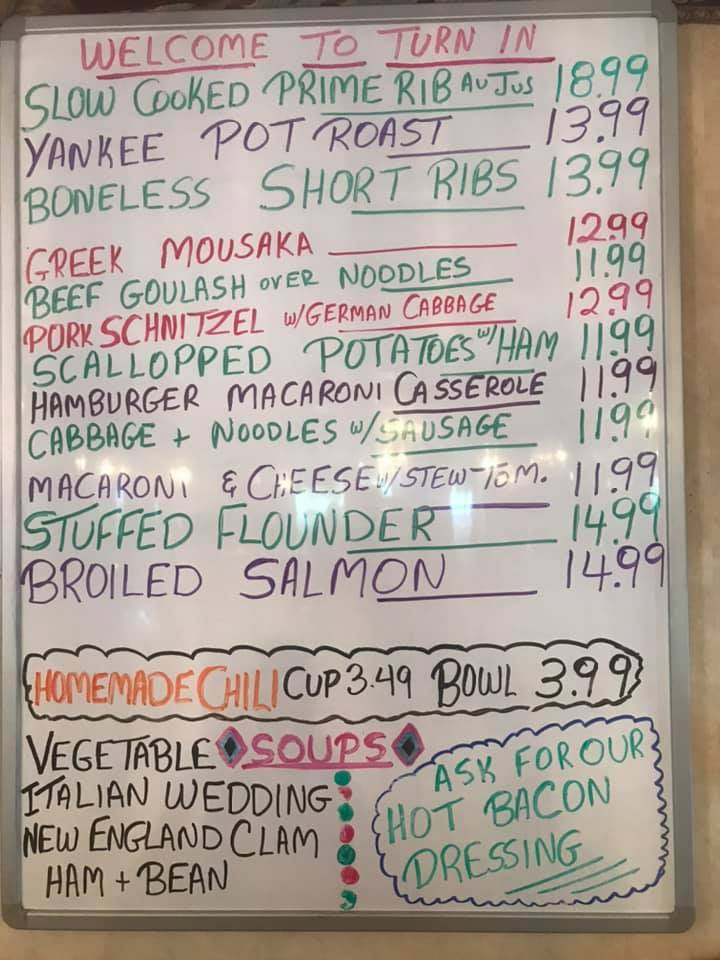 WELCOME TO TURN IN
SLOW COOKED PRIME RIB AU JUS 18.99
YANKEE POT ROAST 13.99
BONELESS SHORT RIBS 13.99
GREEK MOUSAKA 12.99
BEEF GOULASH OVER NOODLES 11.99
PORK SCHNITZEL W/GERMAN CABBAGE 12.99
SCALLOPPED POTATOES W/HAM 11.99
HAMBURGER MACARONI CASSEROLE 11.99
CABBAGE + NOODLES W/SAUSAGE 11.99
MACARONI & CHEESE W/STEW-TOM. 11.99
STUFFED FLOUNDER 14.99
BROILED SALMON 14.99
HOMEMADE CHILI CUP 3.49 BOWL 3.99
SOUPS
VEGETABLE
ITALIAN WEDDING
NEW ENGLAND CLAM
HAM + BEAN
ASK FOR OUR
HOT BACON
DRESSING